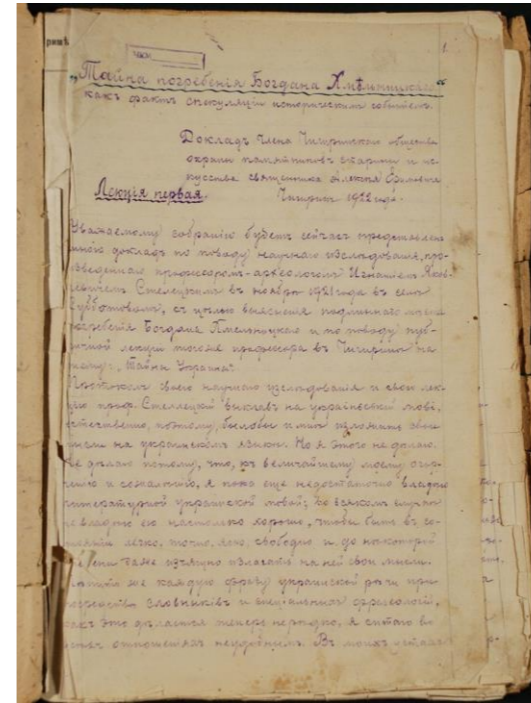 „Тайна погребенія Богдана Хмѣльницкаго“
какъ фактъ спекуляціи историческимъ событіемъ.
Докладъ члена Чигиринскаго общества
охраны памятниковъ старины и ис-
кусства священника Алексѣя
Чигиринъ 1922 года.
Лекція первая.
Уважаемому собранію будетъ сейчасъ представленъ
мною докладъ по поводу научнаго изслѣдованія, про-
изведеннаго профессоромъ-археологомъ Игнатіемъ Яков-
левичемъ Стеллецкимъ въ ноябрѣ 1921 года въ селѣ
Субботовомъ, съ цѣлью выясненія подлиннаго мѣста
погребенія Богдана Хмельницкаго и по поводу пуб-
личной лекціи того же профессора въ Чигиринѣ на
тему: „Тайны Украины“.
Протоколъ своего научнаго изслѣдованія и свою лек-
цію проф. Стеллецкій виклавъ на українській мові,
естественно, поэтому, было бы и мнѣ изложить свои
мысли на украинскомъ языкѣ. Но я этого не дѣлаю.
Не дѣлаю потому, что, къ величайшему моему огор-
ченію и сожалѣнію, я пока еще недостаточно владѣю
литературной украинской мовой; во всякомъ случаѣ
не владѣю ею настолько хорошо, чтобы быть въ со-
стояніи легко, точно, ясно, свободно и до некоторой
степени даже изящно излагать на ней свои мысли.
же каждую фразу украинской рѣчи при
посредствѣ словниківъ и спеціальной фразеологіи,
какъ это дѣлается теперь нерѣдко, я считаю во
всѣхъ отношеніяхъ неудобнымъ. Въ моихъ устахъ